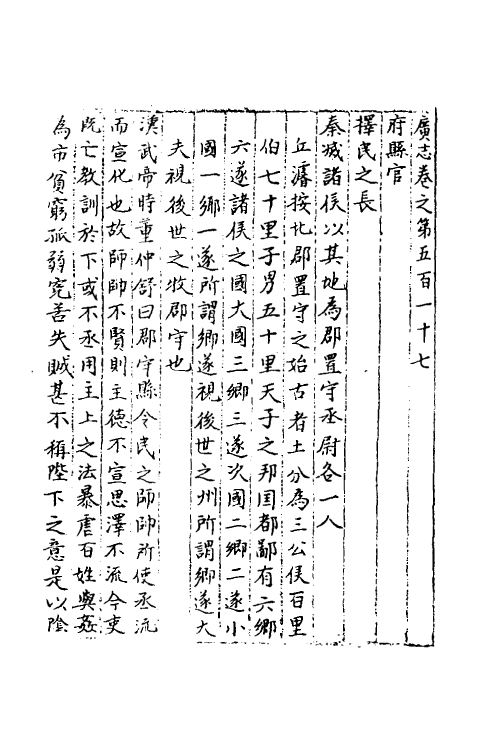 廣志卷之第五百一十七
府縣官
擇民之長
秦滅諸侯以其地為郡置守丞尉各一人
丘濬按此郡置守之始古者土分為三公侯百里
伯七十里子男五十里天子之邦国都鄙有六鄉
六遂諸侯之國大國三鄉三遂次國二鄉二遂小
國一鄉一遂所謂鄉遂視後世之州所謂鄉遂大
夫視後世之牧郡守也
漢武帝時董仲舒曰郡守縣令民之師帥所使丞流
而宣化也故師帥不賢則主德不宣思澤不流今吏
旣亡教訓於下或不丞用主上之法暴虐百姓與姦
為市貧窮孤弱寃苦失賊甚不稱陛下之意是以陰